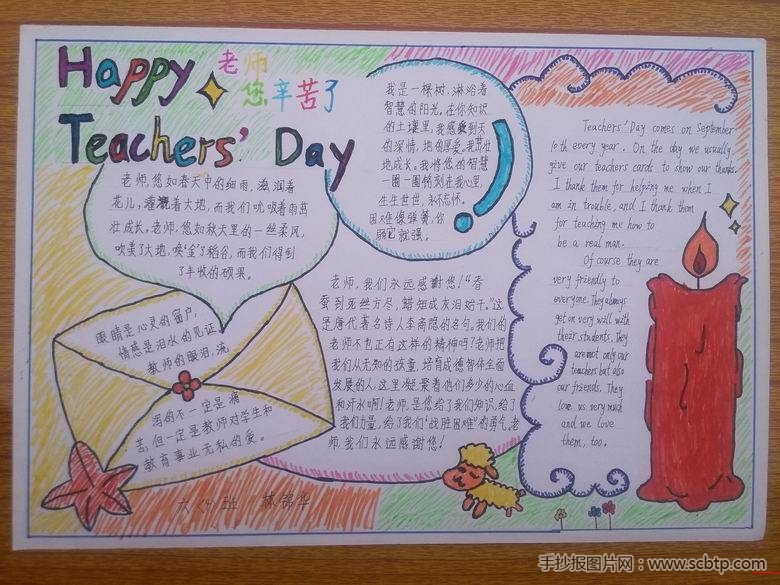 Happy
老师
您辛苦了
Teachers' Day
老师,您如春天中的细雨,滋润着
花儿,灌溉着大地,而我们吮吸着雨茁
壮成长。老师,您如秋天里的一丝柔风,
吹美了大地,唤"金"了稻谷,而我们得到
了丰收的硕果。
我是一棵树,淋浴着
智慧的阳光。在你知识
的土壤里,我感受到天
的深情,地的厚爱。我茁壮
地成长。我将您的智慧
一圈一圈铭刻在我心里,
生生世世,永不忘怀。
困难像弹簧,你
弱它就强。
眼睛是心灵的窗户,
情感是泪水的见证
教师的眼泪,流
泻的不一定是痛
苦,但一定是教师对学生和
教育事业无私的爱。
老师,我们永远感谢您!"春
蚕到死丝方尽,蜡炬成灰泪始干。"这
是唐代著名诗人李商隐的名句。我们的
老师不也正有这样的精神吗?老师把
我们从无知的孩童,培育成德智体全面
发展的人。这里凝聚着他们多少的心血
和汗水啊!老师,是您给了我们知识,给了
我们力量,给了我们"战胜困难"的勇气。老
师,我们永远感谢您!
Teachers' Day comes on September
10th every year. On the day we usually
give our teachers cards to show our thanks.
I thank them for helping me when I
am in trouble, and I thank them
for teaching me how to
be a real man.
Of course they are
very friendly to
everyone. They always
get on very well with
their students. They
are not only our
teachers but also
our friends. They
love us very much
and we love
them, too.
手抄报图片网:www.scbtp.com